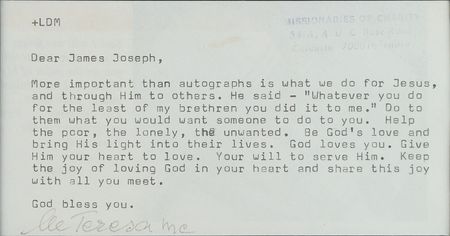 +LDM
MISSIONARIES OF CHARITY
54A, A. J. C. Bose Road
Calcutta 700016
Dear James Joseph,
More important than autographs is what we do for Jesus,
and through Him to others. He said - "Whatever you do
for the least of my brethren you did it to me." Do to
them what you would want someone to do to you. Help
the poor, the lonely, the unwanted. Be God's love and
bring His light into their lives. God loves you. Give
Him your heart to love. Your will to serve Him. Keep
the joy of loving God in your heart and share this joy
with all you meet.
God bless you.
Teresa mc